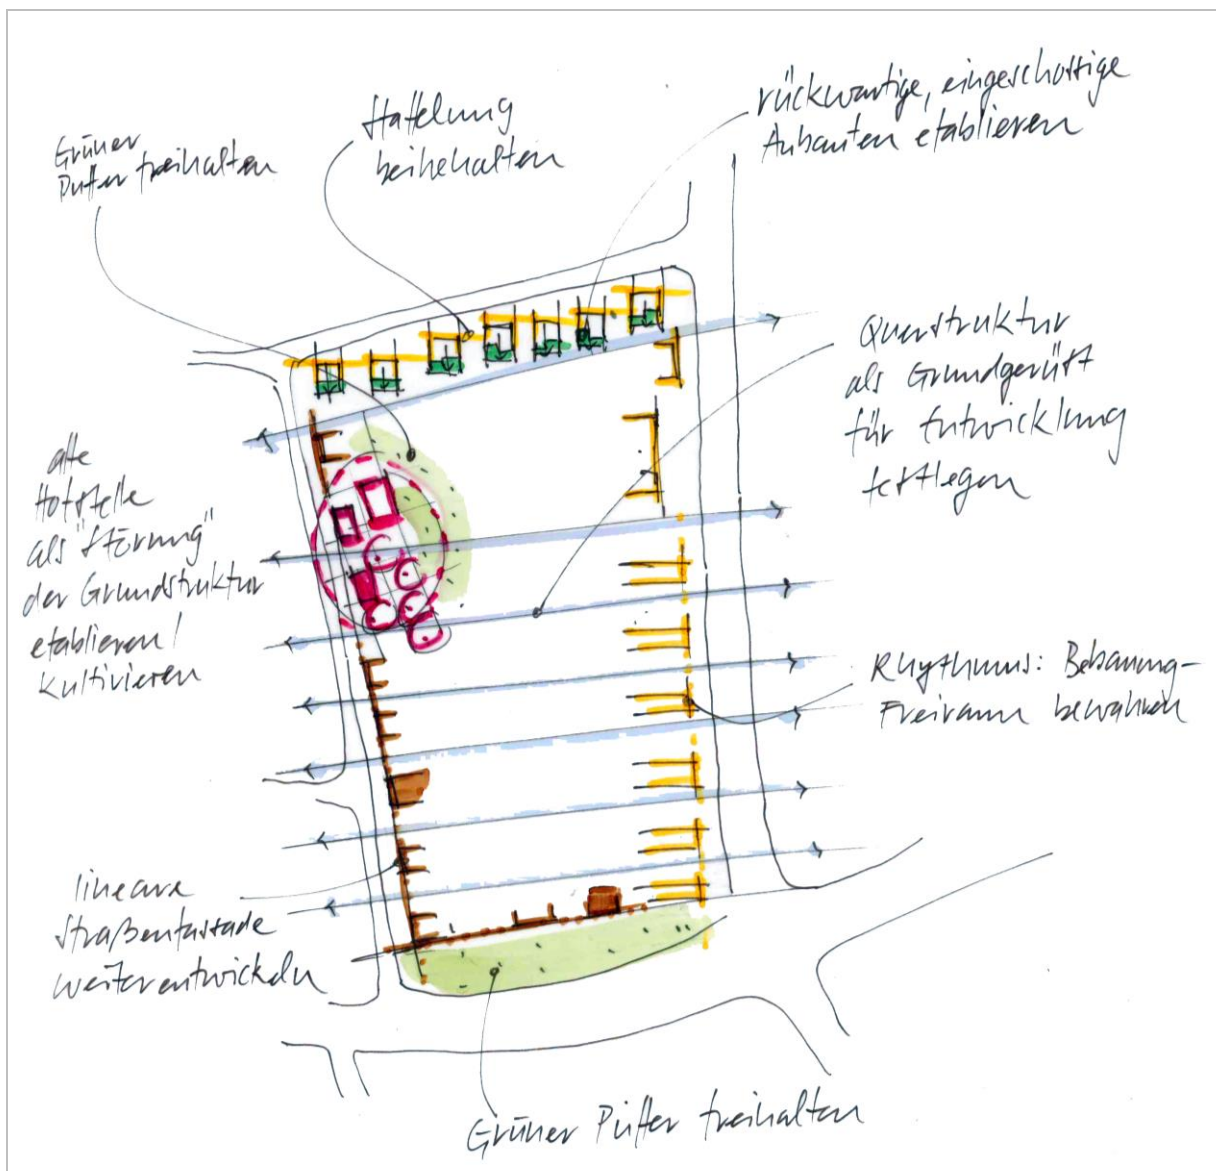 Grüner
Puffer freihalten
Staffelung
beibehalten
rückwärtige, eingeschossige
Anbauten etablieren
Querstruktur
als Grundgerüst
für Entwicklung
festlegen
alte
Hofstelle
als "Störung"
der Grundstruktur
etablieren /
kultivieren
Rhythmus: Bebauung-
Freiraum bewahren
lineare
Straßenfassade
weiterentwickeln
Grüner Puffer freihalten